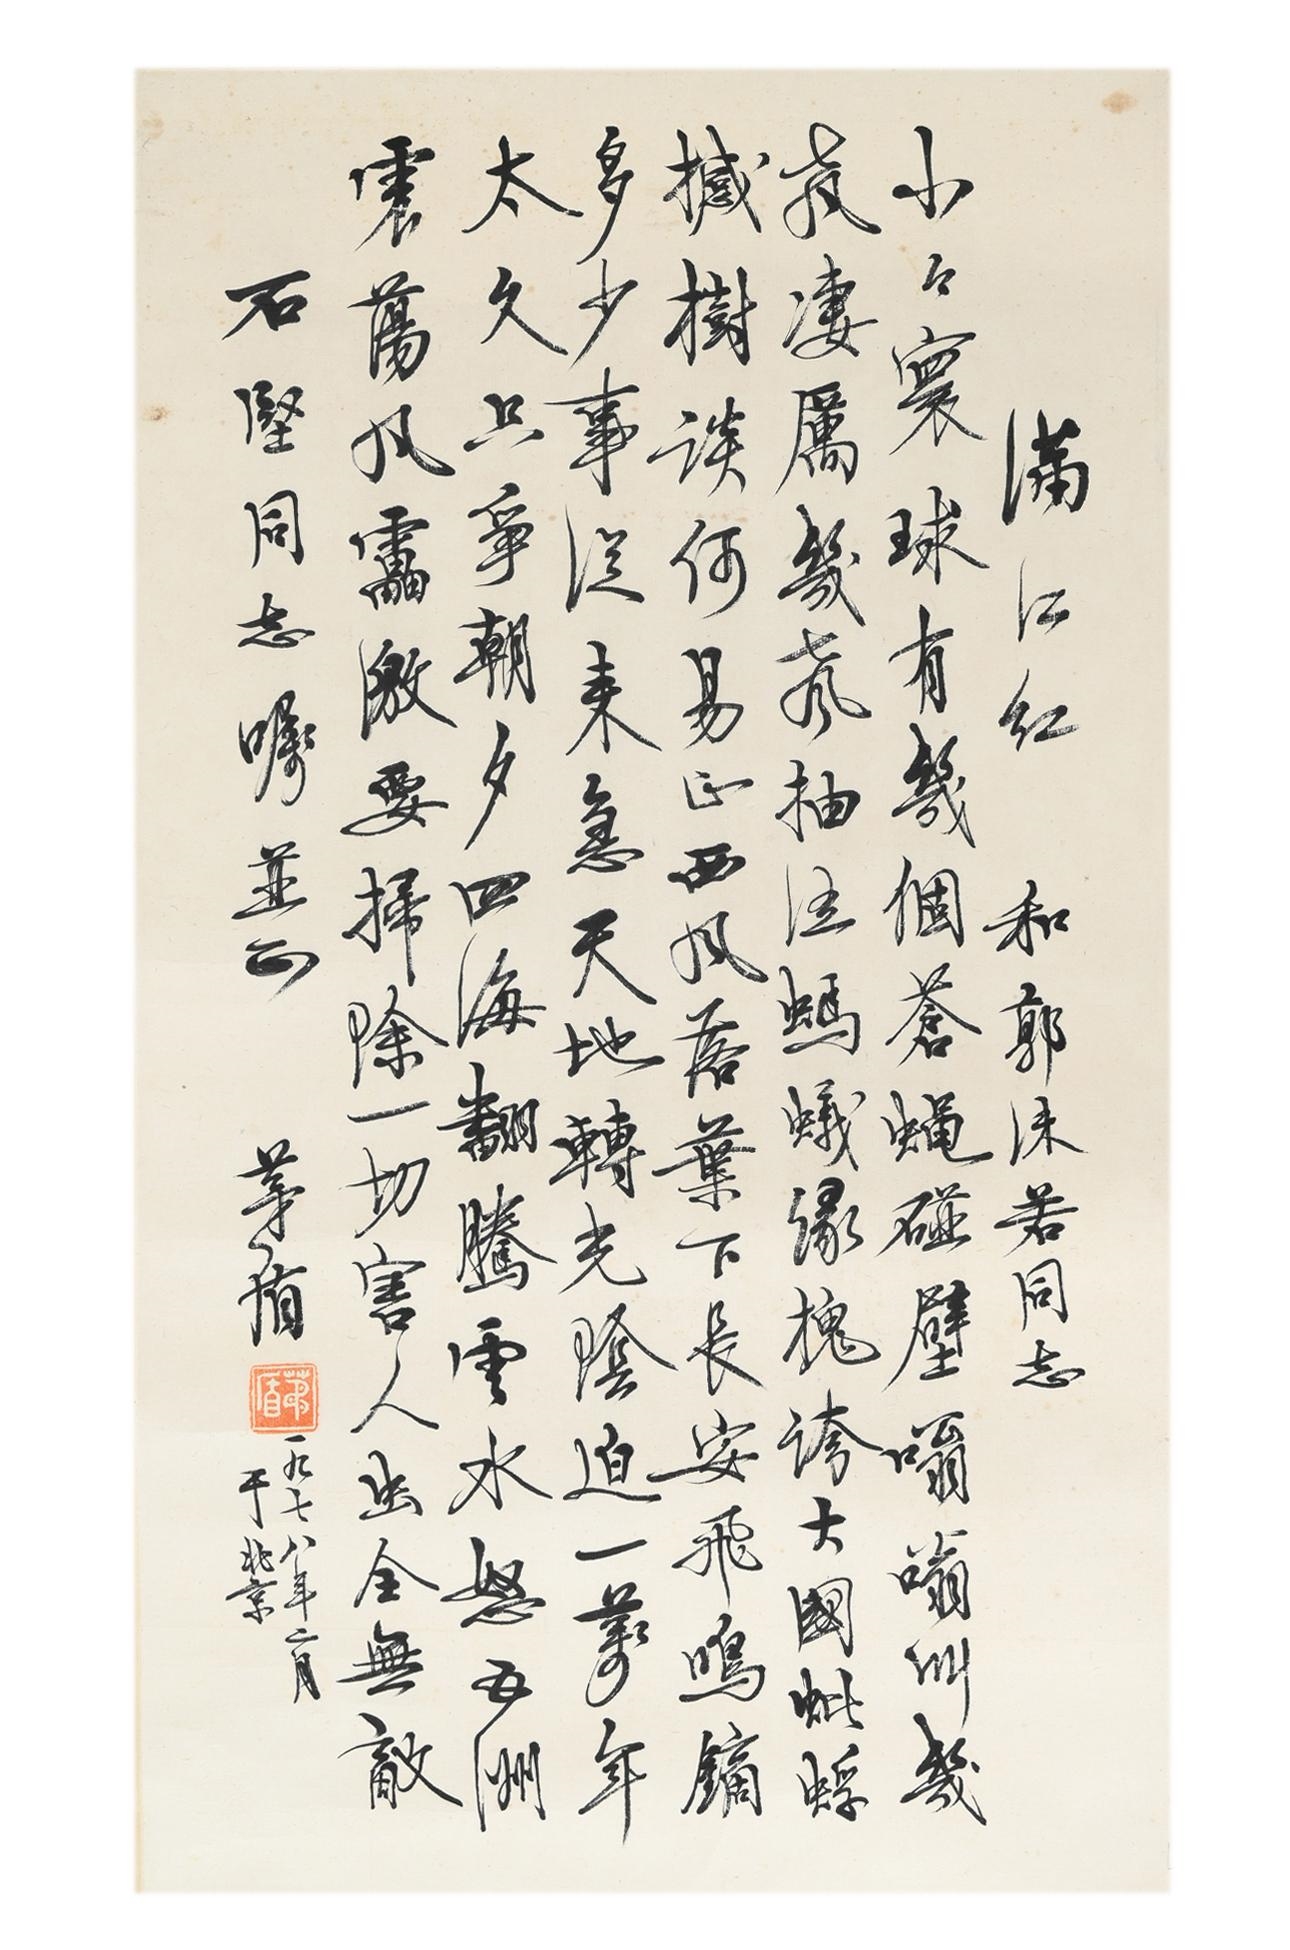 滿江紅 和郭沫若同志
小々寰球有幾個蒼蠅碰壁嗡嗡叫幾
声凄厲幾声抽泣螞蟻緣槐誇大國蚍蜉
撼樹談何易正西风落葉下長安飛鳴鏑
多少事從來急天地轉光陰迫一萬年
太久只爭朝夕四海翻騰雲水怒五洲
震蕩风靁激要掃除一切害人虫全無敵
石堅同志囑並正 茅盾
茅盾
一九七八年二月
于北京